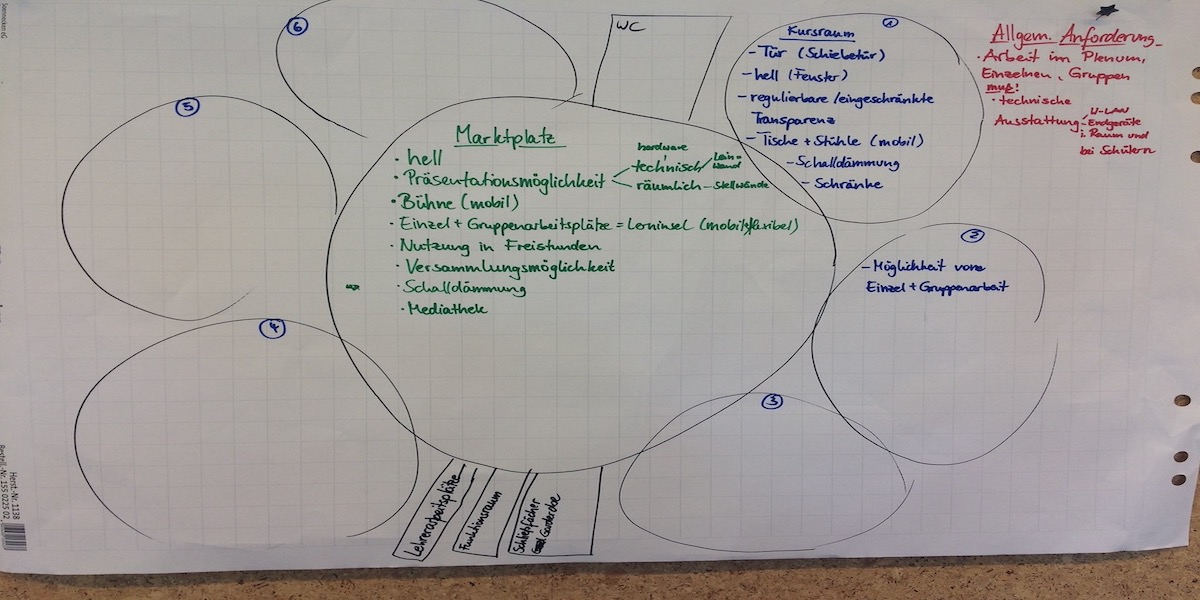 6
WC
1
Kursraum
- Tür (Schiebetür)
- hell (Fenster)
- regulierbare/eingeschränkte
Transparenz
- Tische + Stühle (mobil)
- Schalldämmung
- Schränke
Allgem. Anforderung
· Arbeit im Plenum,
Einzelnen, Gruppen
muß!
· technische
Ausstattung
- W-LAN
- Endgeräte
i. Raum und
bei Schülern
5
Marktplatz
· hell
· Präsentationsmöglichkeit
hardware
technisch
Lein=
wand
räumlich - Stellwände
· Bühne (mobil)
· Einzel + Gruppenarbeitsplätze = Lerninsel (mobil+flexibel)
· Nutzung in Freistunden
· Versammlungsmöglichkeit
· Schalldämmung
· Mediathek
2
- Möglichkeit von
Einzel + Gruppenarbeit
4
3
Lehrerarbeitsplätze
Funktionsraum
Schließfächer
Garderobe
Herst.-Nr. 1138
Bestell.-Nr. 155 0225 02